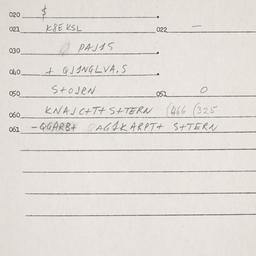 020 $
021 K8EKSL 022 –
030 PAJ1S
040 + GJ1NGLVA.S
050 S+OJPN 051 0
060 KNAJC+T+ S+TERN (466 (325
061 -QGARB+ AG1KARPT+ S+TERN